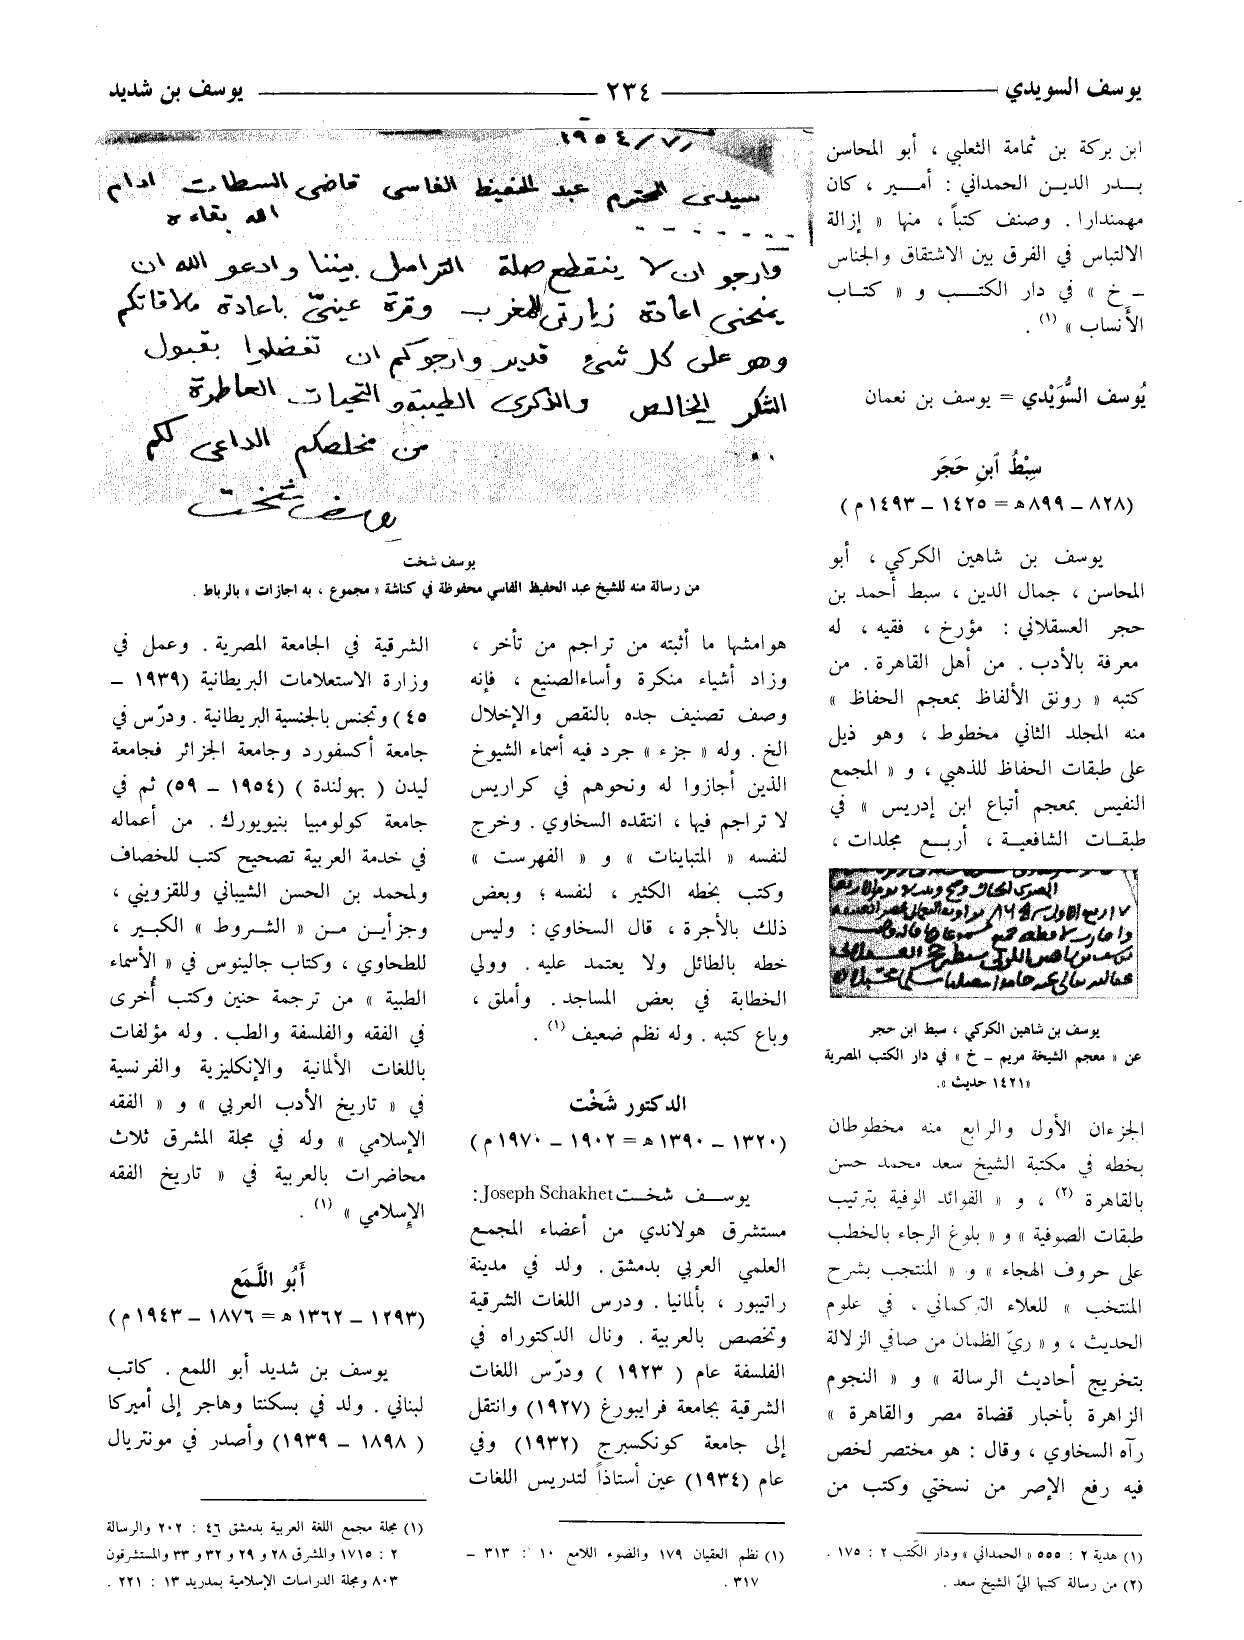 يوسف السويدي ٢٣٤ يوسف بن شديد
ابن بركة بن ثمامة الثعلبي ، أبو المحاسن
بدر الدين الحمداني : أمير ، كان
مهمندارا . وصنف كتباً ، منها « إزالة
الالتباس في الفرق بين الاشتقاق والجناس
ـ خ » في دار الكتب و « كتاب
الأنساب » (١) .
يُوسف السُّوَيْدي = يوسف بن نعمان
سِبْطُ ابنِ حَجَر
(٨٢٨ ـ ٨٩٩ ه = ١٤٢٥ ـ ١٤٩٣ م )
يوسف بن شاهين الكركي ، أبو
المحاسن ، جمال الدين ، سبط أحمد بن
حجر العسقلاني : مؤرخ ، فقيه ، له
معرفة بالأدب . من أهل القاهرة . من
كتبه « رونق الألفاظ بمعجم الحفاظ »
منه المجلد الثاني مخطوط ، وهو ذيل
على طبقات الحفاظ للذهبي ، و « المجمع
النفيس بمعجم أتباع ابن إدريس » في
طبقات الشافعية ، أربع مجلدات ،
يوسف بن شاهين الكركي ، سبط ابن حجر
عن « معجم الشيخة مريم ـ خ » في دار الكتب المصرية
«١٤٢١ حديث ».
الجزءان الأول والرابع منه مخطوطان
بخطه في مكتبة الشيخ سعد محمد حسن
بالقاهرة (٢) ، و « الفوائد الوفية بترتيب
طبقات الصوفية » و « بلوغ الرجاء بالخطب
على حروف الهجاء » و « المنتجب بشرح
المنتخب » للعلاء التركماني ، في علوم
الحديث ، و « ريّ الظمان من صافي الزلالة
بتخريج أحاديث الرسالة » و « النجوم
الزاهرة بأخبار قضاة مصر والقاهرة »
رآه السخاوي ، وقال : هو مختصر لخص
فيه رفع الإصر من نسختي وكتب من
(١) هدية ٢ : ٥٥٥ « الحمداني » ودار الكتب ٢ : ١٧٥ .
(٢) من رسالة كتبها اليّ الشيخ سعد .
٧/ ١٩٥٤
سيدى المحترم عبد الحفيظ الفاسى قاضى السطات ادام
الله بقاءه
وارجو ان لا ينقطع صلة التراسل بيننا وادعو الله ان
يمنحنى اعادة زيارتى للمغرب وقرة عينىّ باعادة ملاقاتكم
وهو على كل شئ قدير وارجوكم ان تفضلوا بقبول
الشكر الخالص والذكرى الطيبة والتحيات العاطرة
من مخلصكم الداعى لكم
يوسف شخت
يوسف شخت
من رسالة منه للشيخ عبد الحفيظ الفاسي محفوظة في كناشة « مجموع ، به اجازات » بالرباط .
هوامشها ما أثبته من تراجم من تأخر ،
وزاد أشياء منكرة وأساءالصنيع ، فإنه
وصف تصنيف جده بالنقص والإخلال
الخ . وله « جزء » جرد فيه أسماء الشيوخ
الذين أجازوا له ونحوهم في كراريس
لا تراجم فيها ، انتقده السخاوي . وخرج
لنفسه « المتباينات » و « الفهرست »
وكتب بخطه الكثير ، لنفسه ؛ وبعض
ذلك بالأجرة ، قال السخاوي : وليس
خطه بالطائل ولا يعتمد عليه . وولي
الخطابة في بعض المساجد . وأملق ،
وباع كتبه . وله نظم ضعيف (١) .
الدكتور شَخْت
(١٣٢٠ ـ ١٣٩٠ ه = ١٩٠٢ ـ ١٩٧٠ م )
يوسف شخت Joseph Schakhet:
مستشرق هولاندي من أعضاء المجمع
العلمي العربي بدمشق . ولد في مدينة
راتيبور ، بألمانيا . ودرس اللغات الشرقية
وتخصص بالعربية . ونال الدكتوراه في
الفلسفة عام ( ١٩٢٣ ) ودرّس اللغات
الشرقية بجامعة فرايبورغ (١٩٢٧) وانتقل
إلى جامعة كونكسبرج (١٩٣٢) وفي
عام (١٩٣٤) عين أستاذاً لتدريس اللغات
(١) نظم العقيان ١٧٩ والضوء اللامع ١٠ : ٣١٣ ـ
٣١٧ .
الشرقية في الجامعة المصرية . وعمل في
وزارة الاستعلامات البريطانية (١٩٣٩ ـ
٤٥ ) وتجنس بالجنسية البريطانية . ودرّس في
جامعة أكسفورد وجامعة الجزائر فجامعة
ليدن ( بهولندة ) (١٩٥٤ ـ ٥٩) ثم في
جامعة كولومبيا بنيويورك . من أعماله
في خدمة العربية تصحيح كتب للخصاف
ولمحمد بن الحسن الشيباني وللقزويني ،
وجزأين من « الشروط » الكبير ،
للطحاوي ، وكتاب جالينوس في « الأسماء
الطبية » من ترجمة حنين وكتب أُخرى
في الفقه والفلسفة والطب . وله مؤلفات
باللغات الألمانية والإنكليزية والفرنسية
في « تاريخ الأدب العربي » و « الفقه
الإسلامي » وله في مجلة المشرق ثلاث
محاضرات بالعربية في « تاريخ الفقه
الإسلامي » (١) .
أَبُو اللَّمَع
(١٢٩٣ ـ ١٣٦٢ ه = ١٨٧٦ ـ ١٩٤٣ م )
يوسف بن شديد أبو اللمع . كاتب
لبناني . ولد في بسكنتا وهاجر إلى أميركا
( ١٨٩٨ ـ ١٩٣٩) وأصدر في مونتريال
(١) مجلة مجمع اللغة العربية بدمشق ٤٦ : ٢٠٢ والرسالة
٢ : ١٧١٥ والمشرق ٢٨ و ٢٩ و ٣٢ و ٣٣ والمستشرقون
٨٠٣ ومجلة الدراسات الإسلامية بمدريد ١٣ : ٢٢١ .